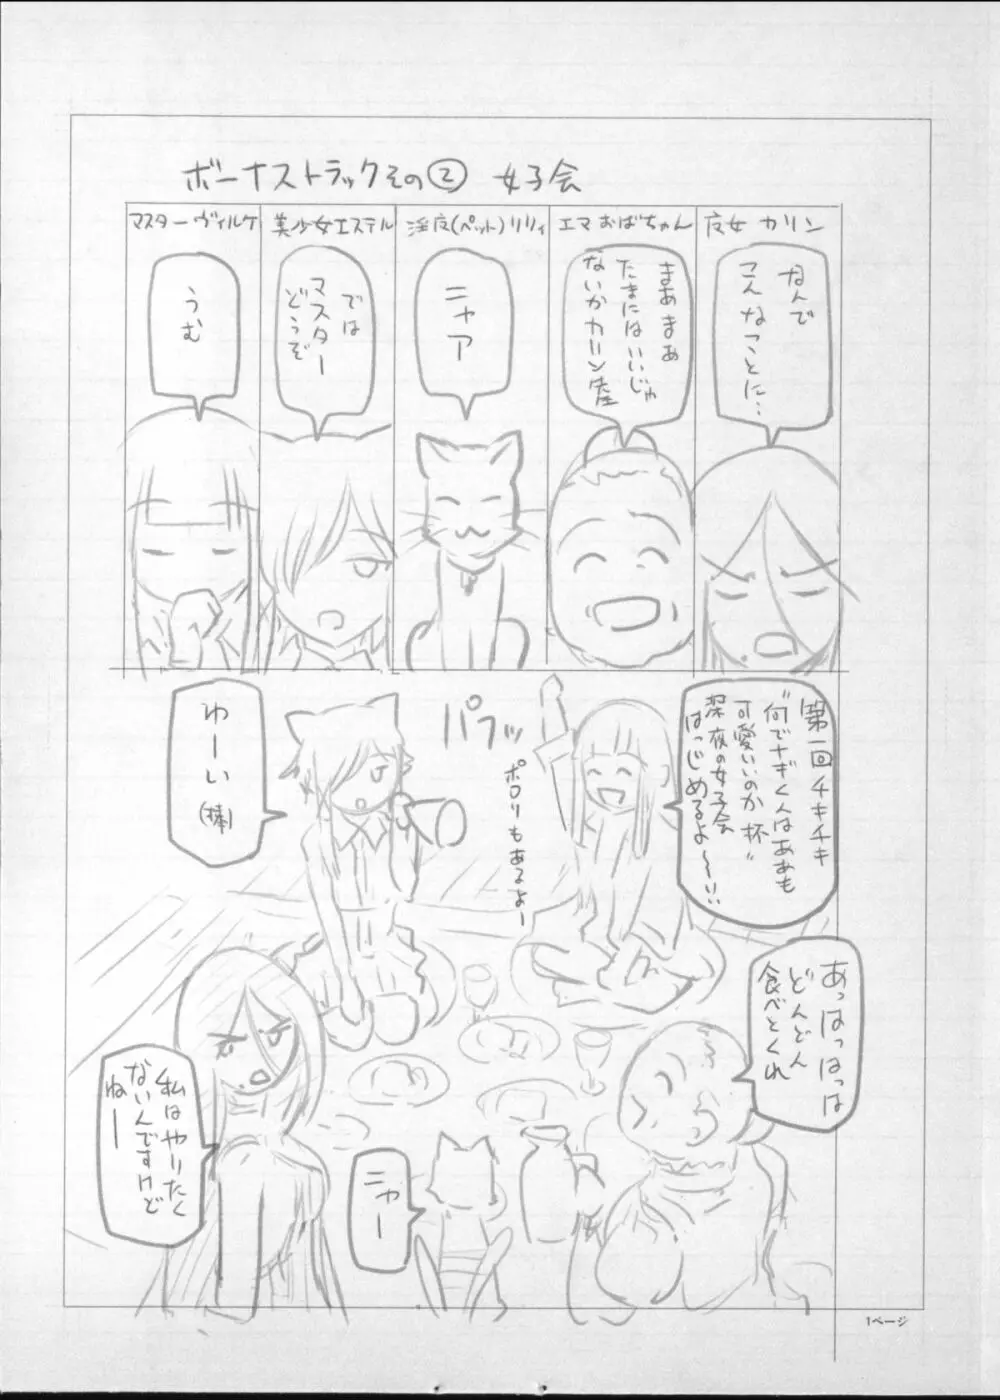 ボーナストラックその② 女子会
皮女 カリン
なんで
こんなことに…
エマおばちゃん
まあまあ
たまにはいいじゃ
ないかカリン
淫皮(ペット)リリィ
ニャア
美少女エステル
では
マスター
どうぞ
マスターヴィルケ
うむ
第一回チキチキ
"何でナギくんはああも
可愛いのか杯"
深夜の女子会
はっじめるよ〜!!
パフッ
ポロリもあるよー
わーい
(棒)
あっはっはっは
どんどん
食べとくれ
私はやりたく
ないんですけど
ねー
ニャー
1ページ